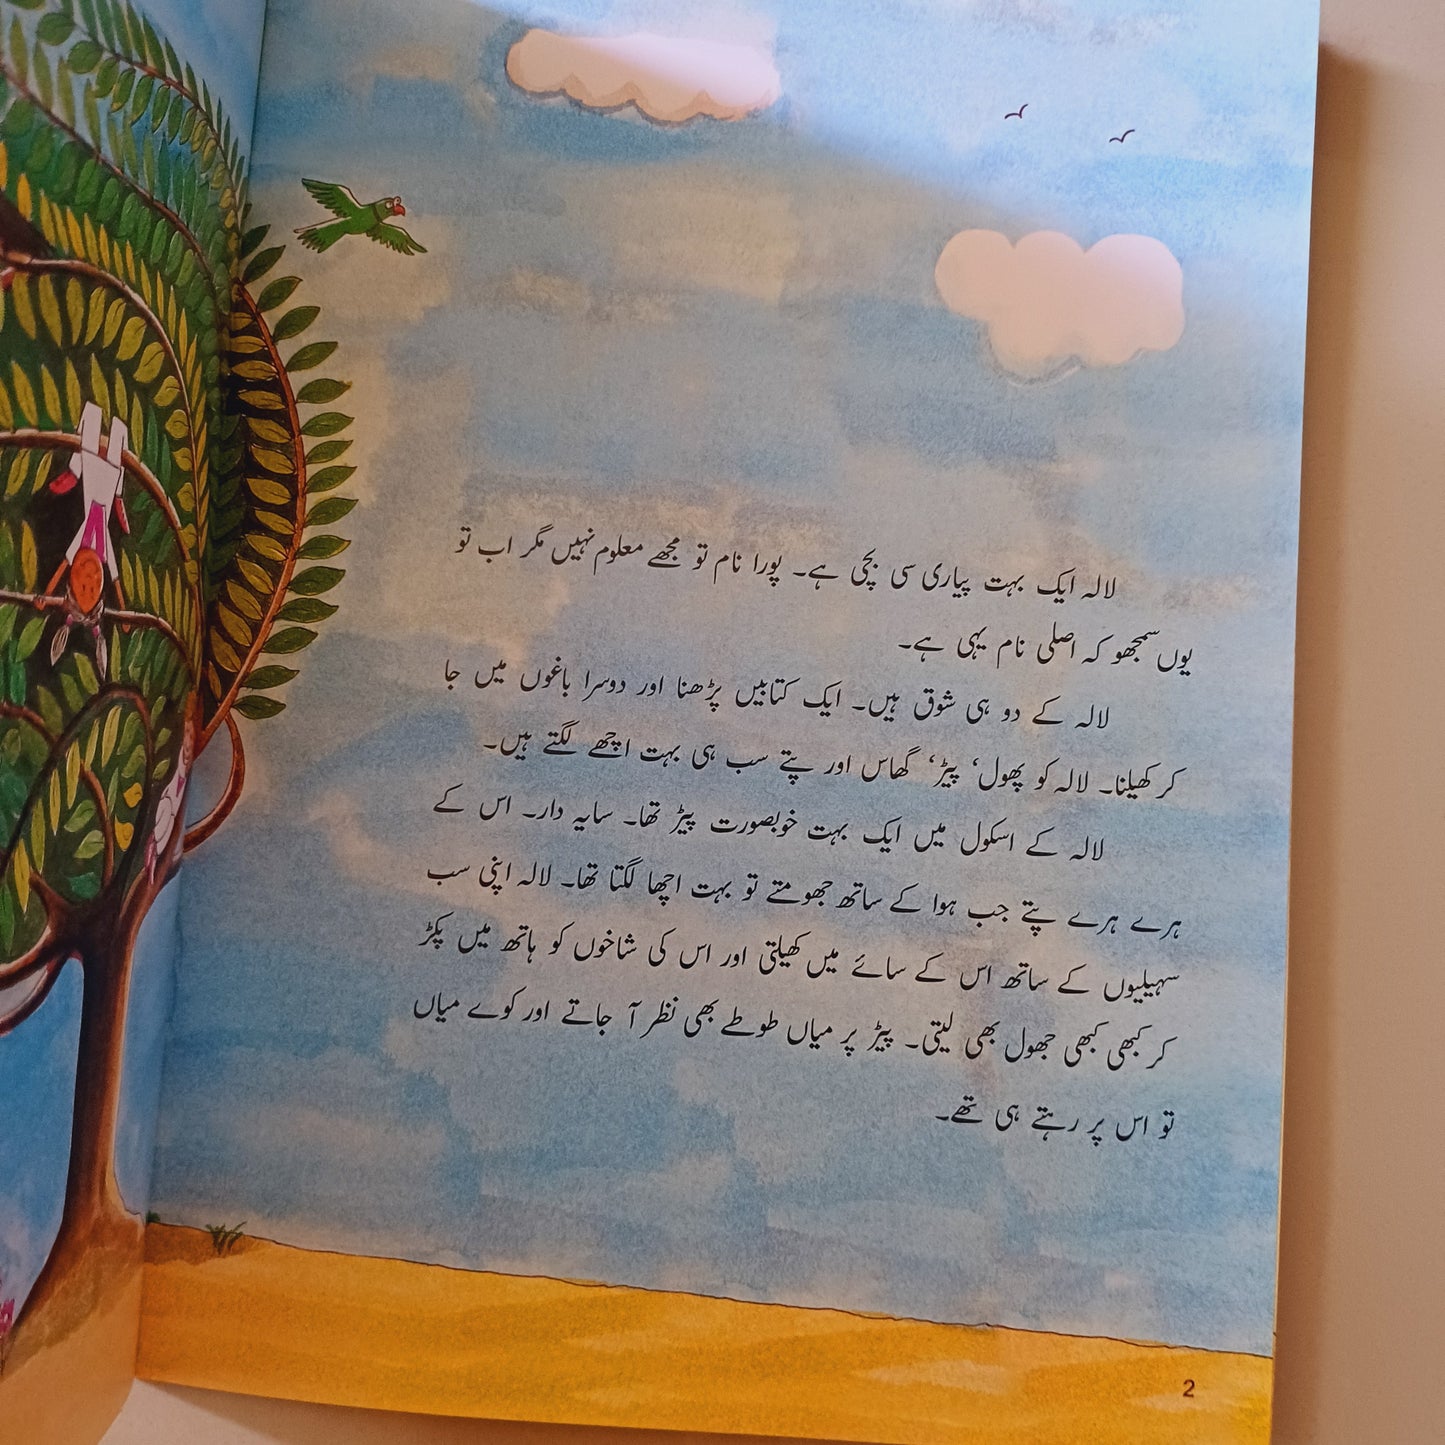 لالہ ایک بہت پیاری سی بچی ہے۔ پورا نام تو مجھے معلوم نہیں مگر اب تو
یوں سمجھو کہ اصلی نام یہی ہے۔
لالہ کے دو ہی شوق ہیں۔ ایک کتابیں پڑھنا اور دوسرا باغوں میں جا
کر کھیلنا۔ لالہ کو پھول‘ پیڑ‘ گھاس اور پتے سب ہی بہت اچھے لگتے ہیں۔
لالہ کے اسکول میں ایک بہت خوبصورت پیڑ تھا۔ سایہ دار۔ اس کے
ہرے ہرے پتے جب ہوا کے ساتھ جھومتے تو بہت اچھا لگتا تھا۔ لالہ اپنی سب
سہیلیوں کے ساتھ اس کے سائے میں کھیلتی اور اس کی شاخوں کو ہاتھ میں پکڑ
کر کبھی کبھی جھول بھی لیتی۔ پیڑ پر میاں طوطے بھی نظر آ جاتے اور کوے میاں
تو اس پر رہتے ہی تھے۔
2